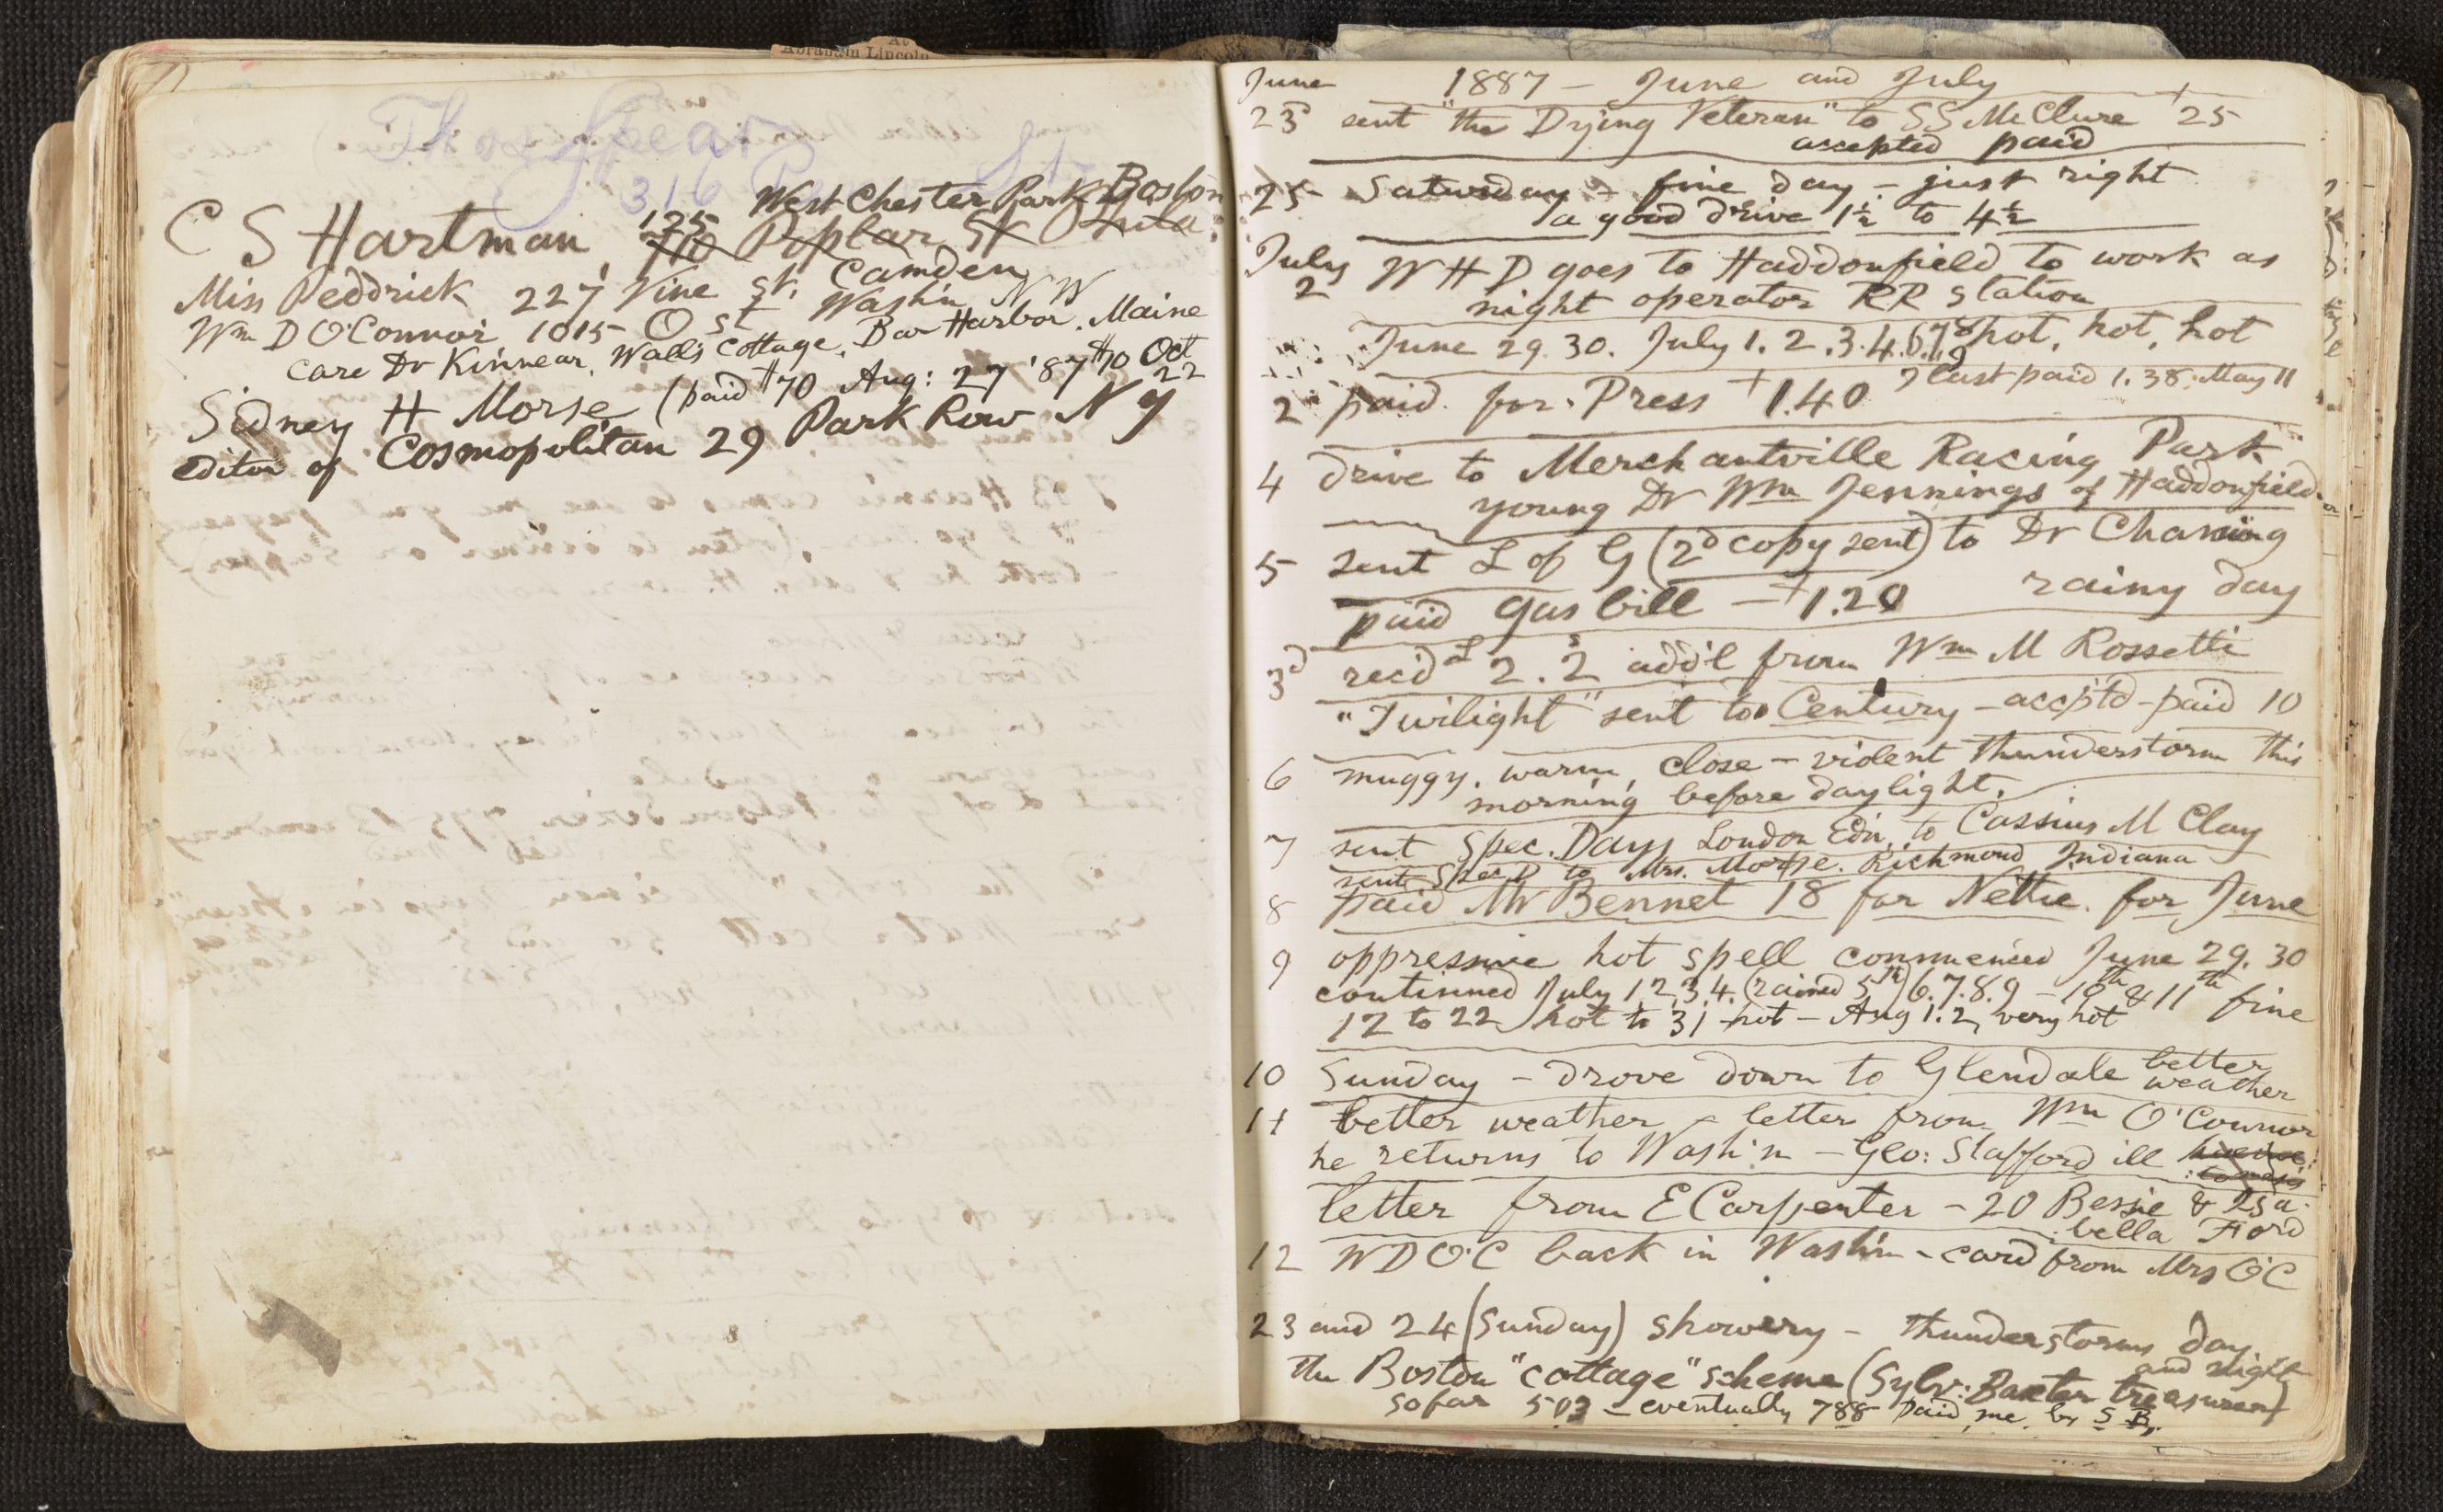 At
Abraham Lincoln
Thos Spear
316
West Chester Park Boston
C S Hartman, 125 710 Poplar St Phila:
Miss Peddrick 227 Vine st. Camden
Wm D O'Connor 1015 O st Washn N W
care Dr Kinnear, Walls Cottage, Bar Harbor, Maine
Sidney H Morse (paid $70 Aug: 27 '87 $70 Oct 22
editor of Cosmopolitan 29 Park Row N Y
June 1887 – June and July
23 sent "the Dying Veteran" to S S McClure 25
accepted paid
25 – Saturday – fine day – just right
a good drive 1½ to 4½
July W H D goes to Haddonfield to work as
2 night operator RR station
June 29. 30. July 1. 2. 3. 4. 6. 7. 8 9 hot, hot, hot
2 paid for Press 1.40 last paid 1.38 May 11
4 drive to Merchantville Racing Park
young Dr Wm Jennings of Haddonfield
5 sent L of G (2d copy sent) to Dr Channing
paid gas bill – 1.20 rainy day
3d rec'd £2. 2s add'l from Wm M Rossetti
"Twilight" sent to Century – acc'p'td – paid 10
6 muggy, warm, close – violent thunderstorm this
morning before daylight.
7 sent Spec. Days London Edn. to Cassius M Clay
sent Spec D to Mrs. Morse. Richmond Indiana
8 paid Mr Bennet 18 for Nettie. for June
9 oppressive hot spell commenced June 29. 30
continued July 1, 2, 3, 4. (rained 5th) 6. 7. 8. 9 – 10th & 11th fine
12 to 22 hot to 31 hot – Aug 1. 2, very hot
10 Sunday – drove down to Glendale better
weather
11 better weather – letter from Wm O'Connor
he returns to Wash'n – Geo: Stafford ill
letter from E Carpenter – 20 Bessie & Isa
bella Ford
12 W D O'C back in Wash'n – card from Mrs O'C
23 and 24 (Sunday) showery – thunderstorms day
and night
the Boston "cottage" scheme (Sylv: Baxter treasurer)
so far 503 – eventually 788 paid me by S B.